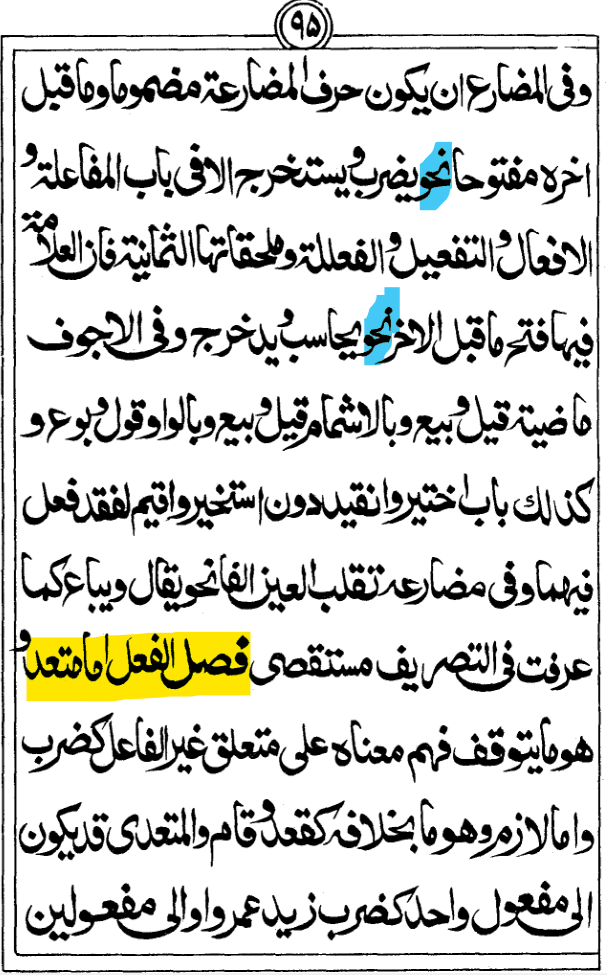 ۹۵
وفى المضارع ان يكون حرف المضارعة مضموما وما قبل
اخره مفتوحا نحو يضرب ويستخرج الا فى باب المفاعلة و
الافعال والتفعيل والفعللة وملحقاتها الثمانية فان العلامة
فيها فتح ما قبل الاخر نحو يحاسب ويدحرج وفى الاجوف
ماضيته قيل وبيع وبالاشمام قيل وبيع وبالواو قول وبوع و
كذلك باب اختير وانقيد دون استخير واقيم لفقد فعل
فيهما وفى مضارعه تقلب العين الفا نحو يقال ويباع كما
عرفت فى التصريف مستقصى فصل الفعل اما متعد و
هو ما يتوقف فهم معناه على متعلق غير الفاعل كضرب
واما لازم وهو ما بخلافه كقعد وقام والمتعدى قد يكون
الى مفعول واحد كضرب زيد عمروا والى مفعولين